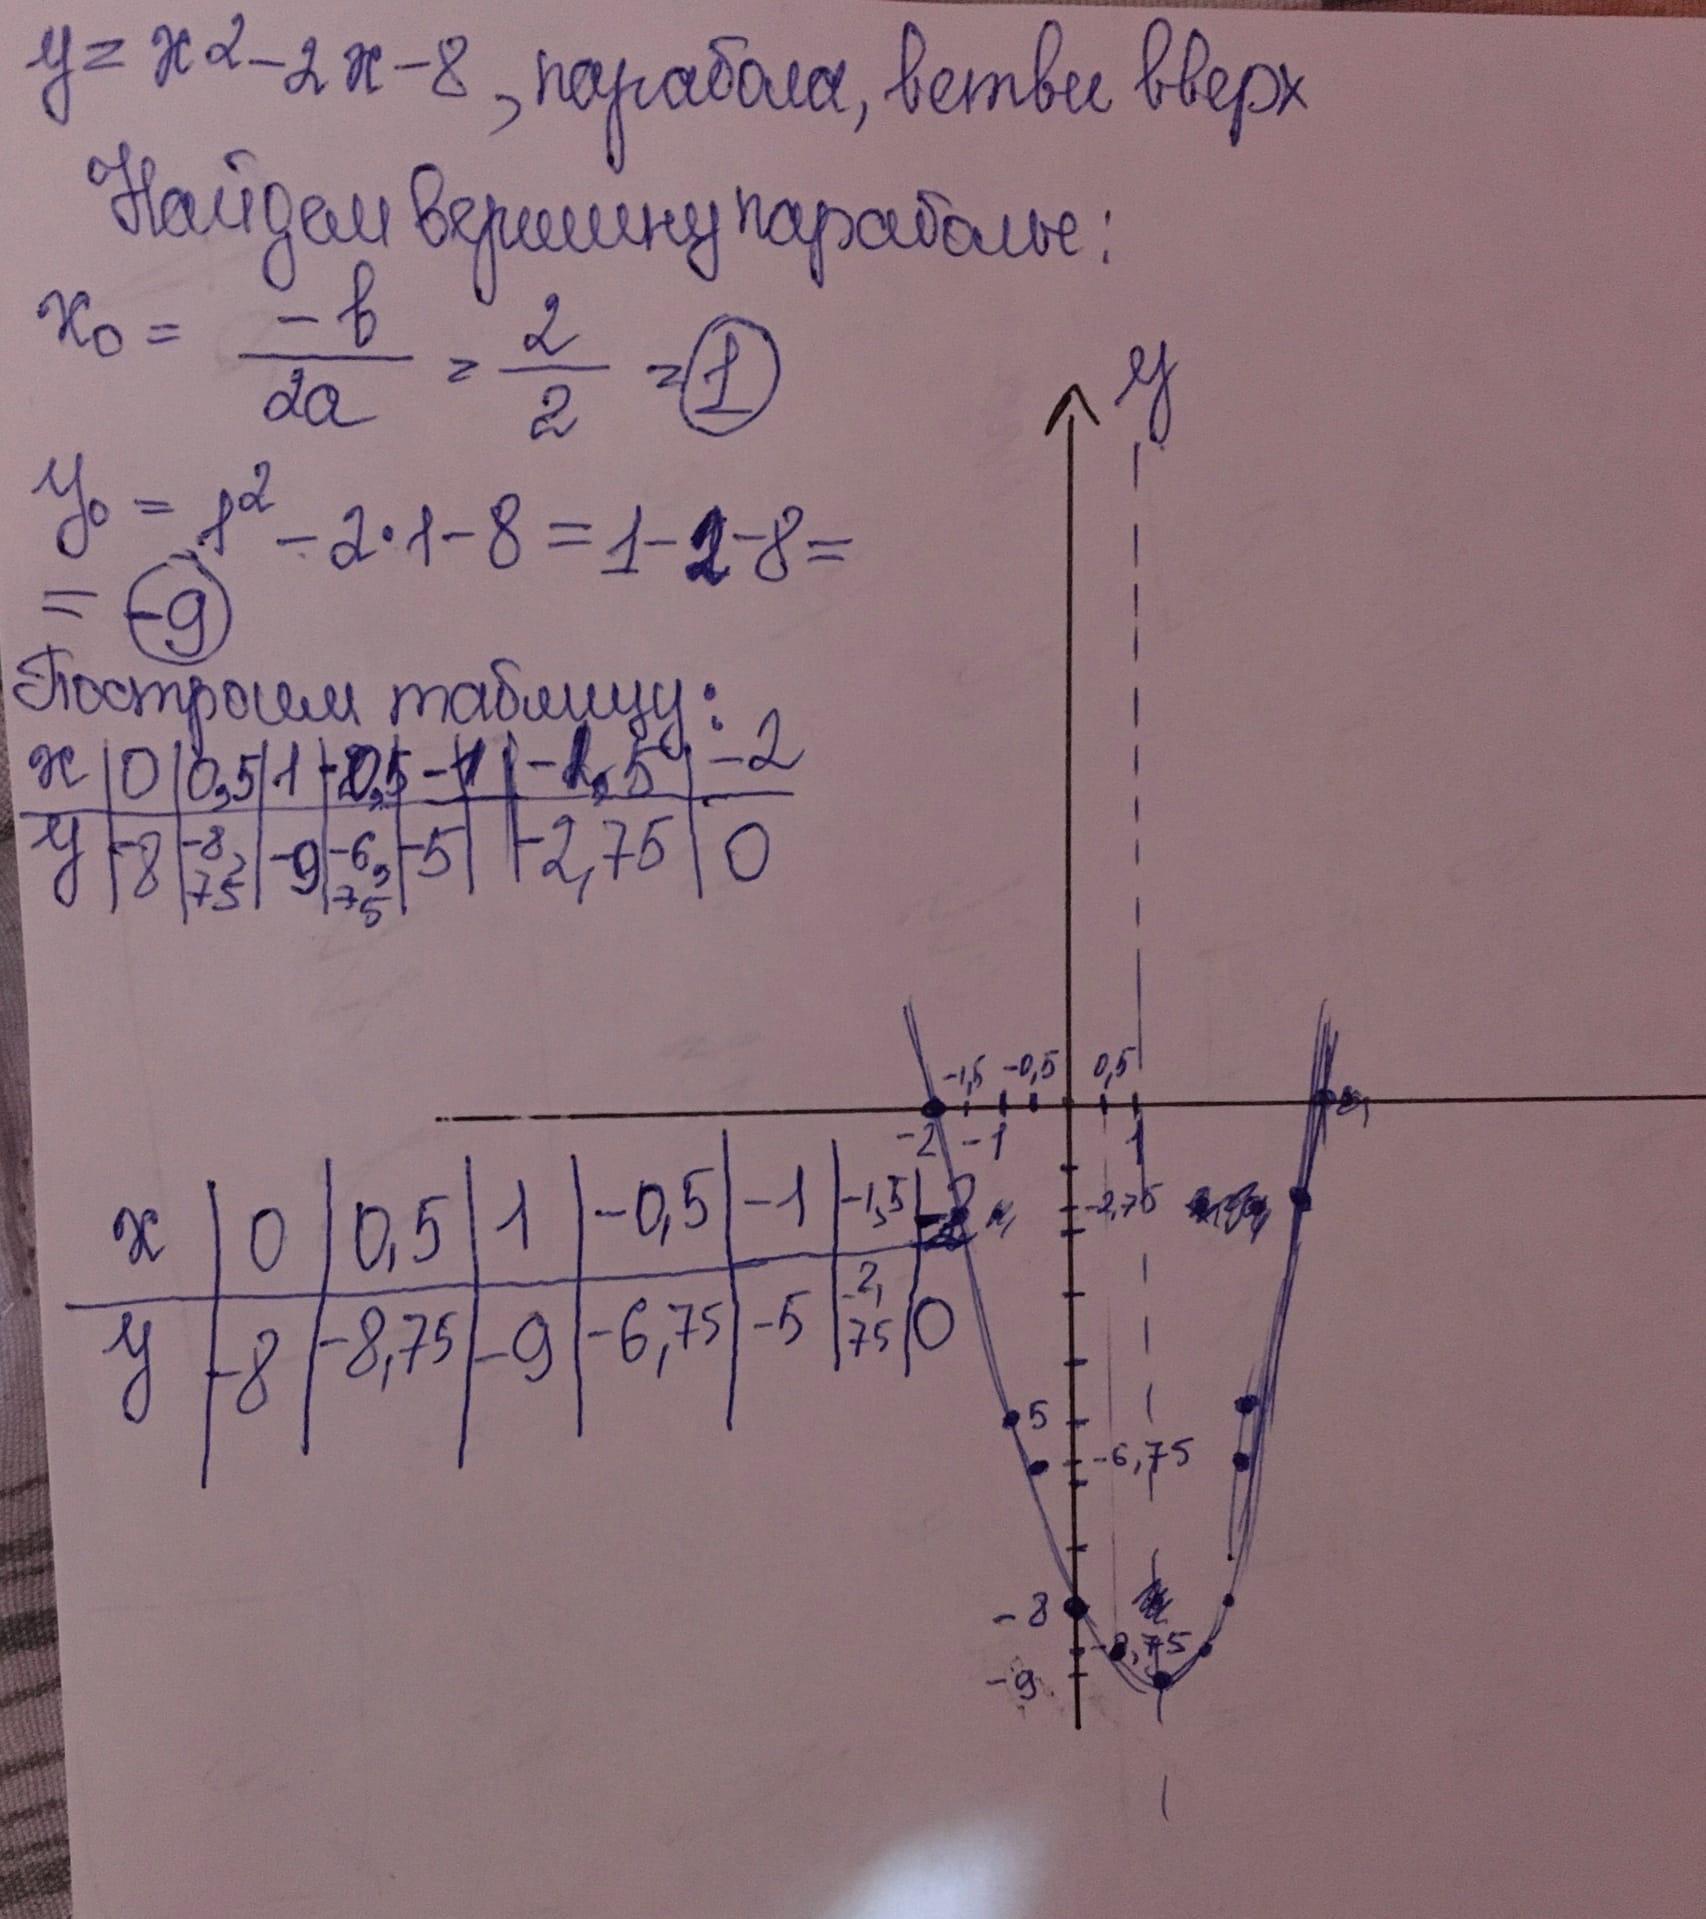 y = x² - 2x - 8, парабола, ветви вверх
Найдем вершину параболы:
x₀ = -b / 2a = 2 / 2 = 1
y₀ = 1² - 2·1 - 8 = 1 - 2 - 8 =
= -9
Построим таблицу:
x | 0 | 0,5 | 1 | -0,5 | -1 | -1,5 | -2
y | -8 | -8,75 | -9 | -6,75 | -5 | -2,75 | 0
y
-1,5 -0,5 0,5
-2 -1 1
x | 0 | 0,5 | 1 | -0,5 | -1 | -1,5 | -2
y | -8 | -8,75 | -9 | -6,75 | -5 | -2,75 | 0
-2,75
5
-6,75
-8
-8,75
-9